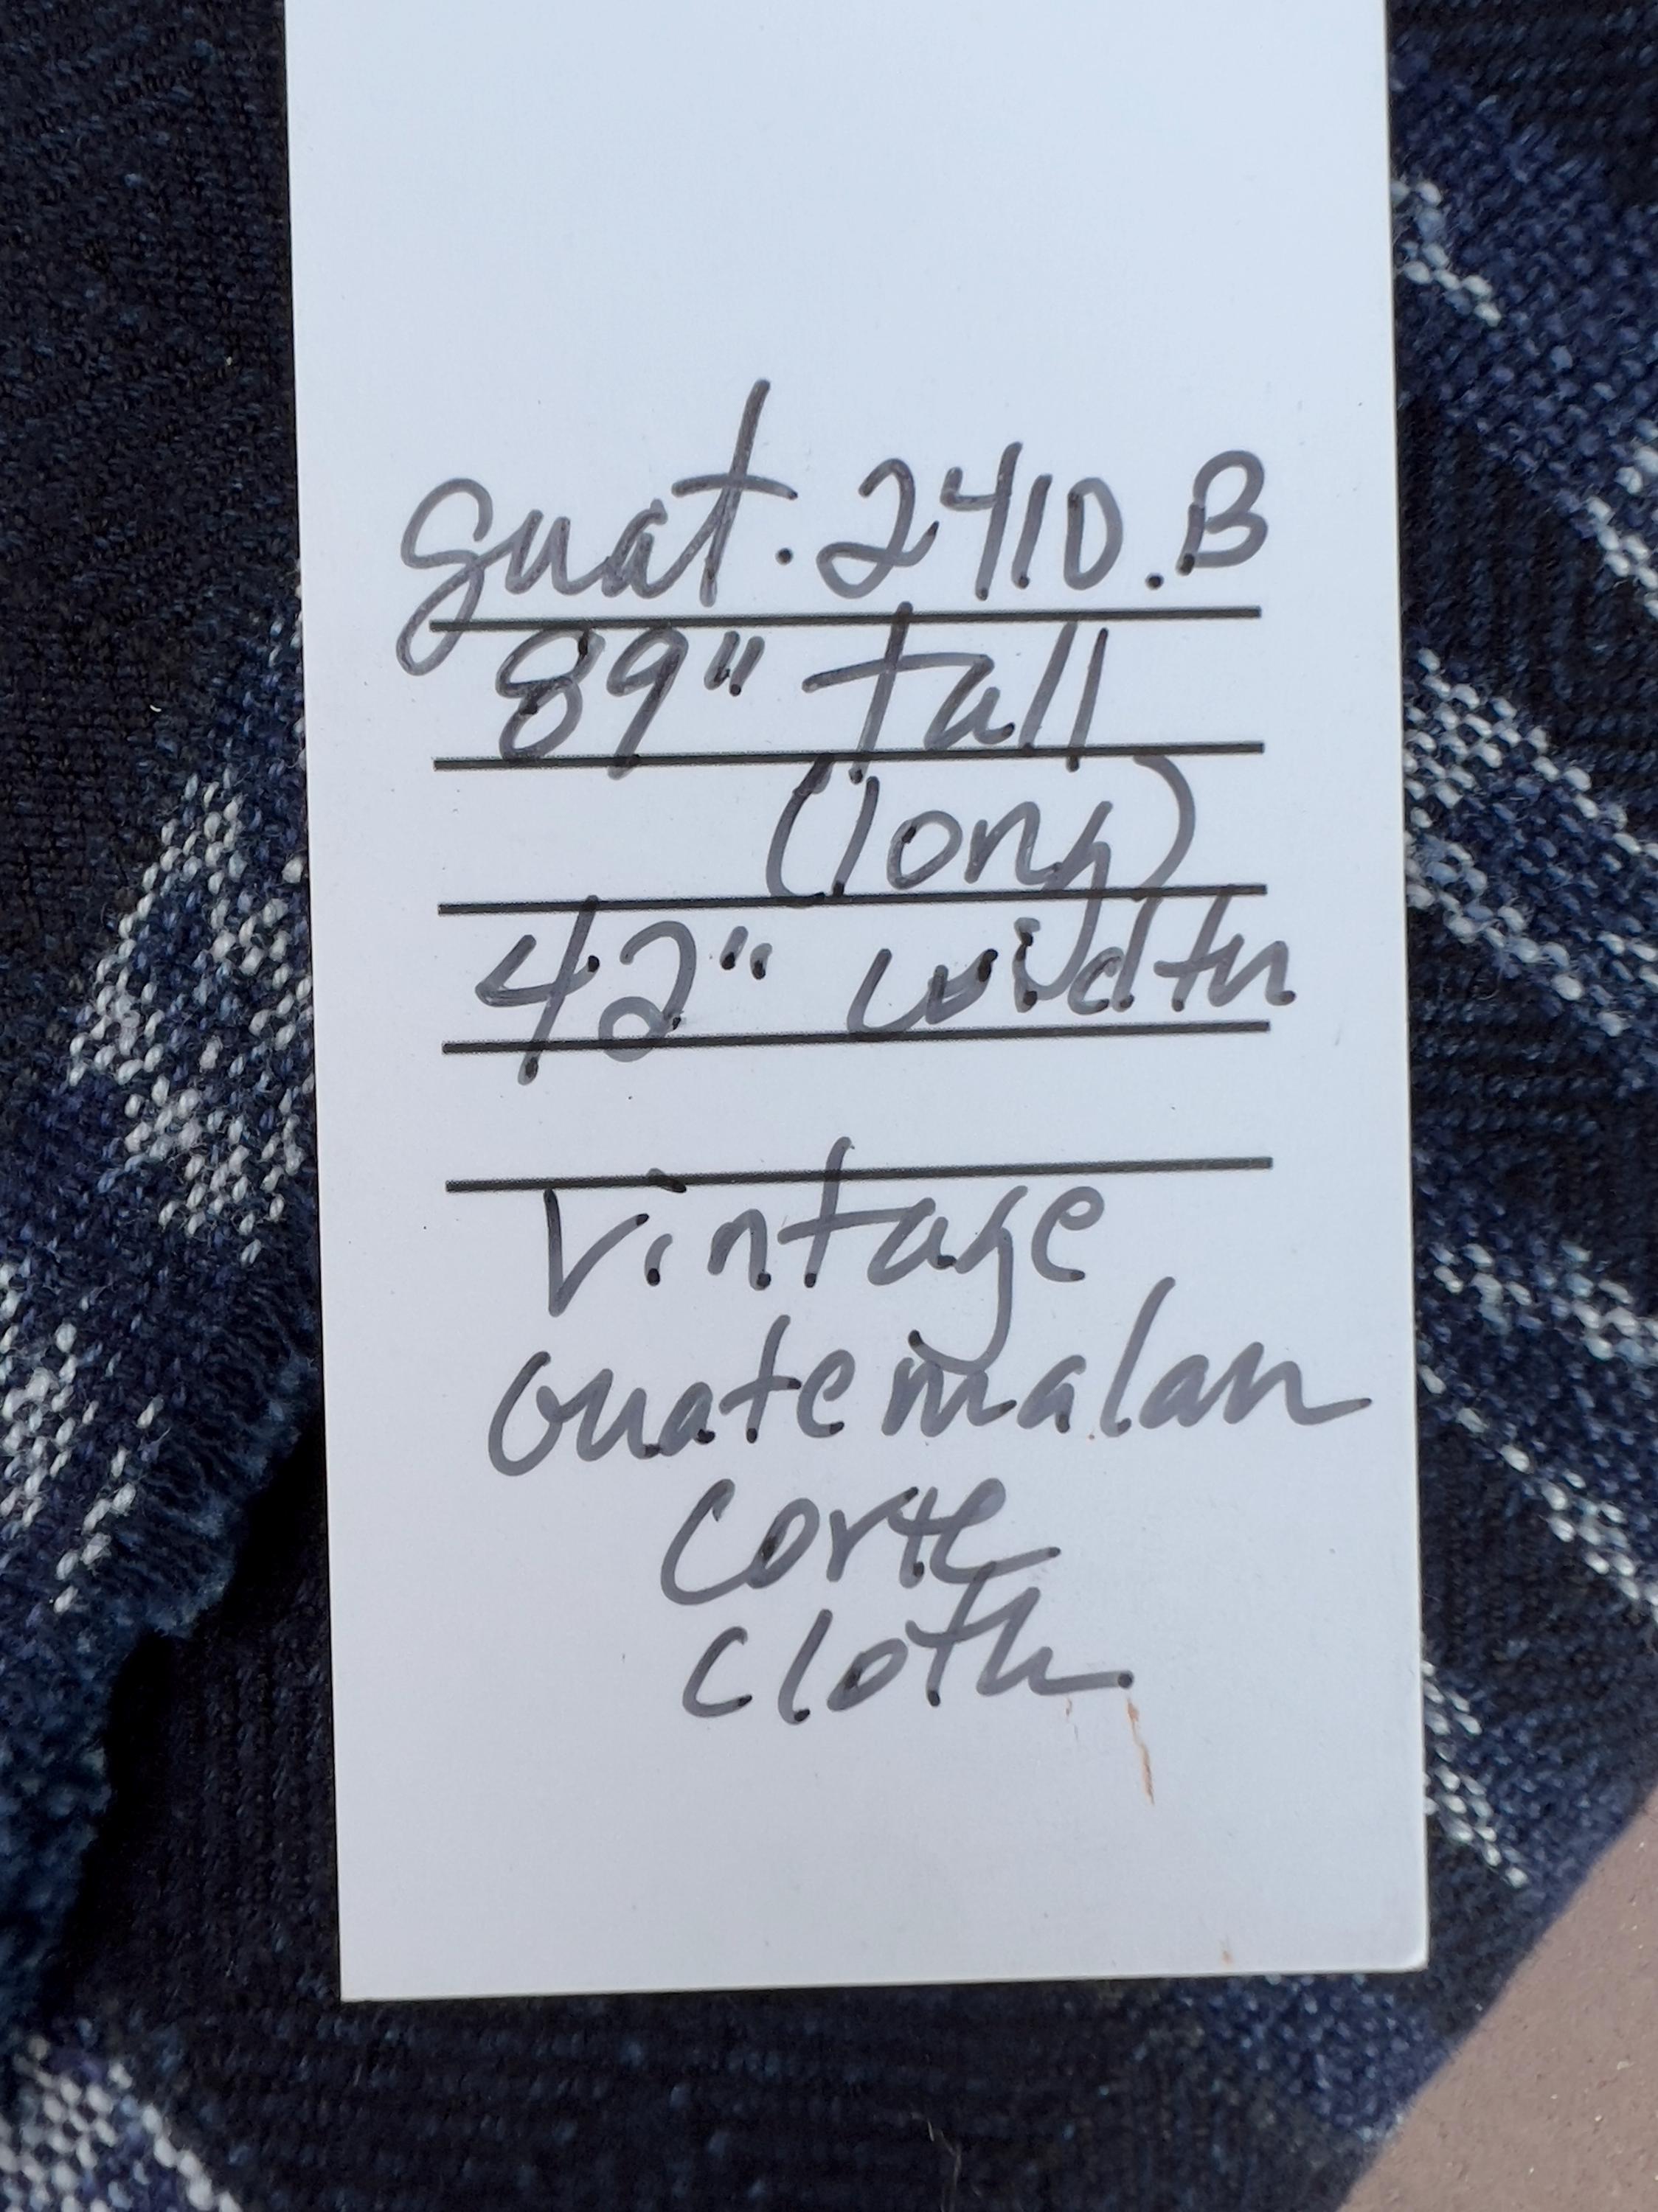 guat. 2410.B
89" tall
(long)
42" width
Vintage
Guatemalan
Corte
Cloth